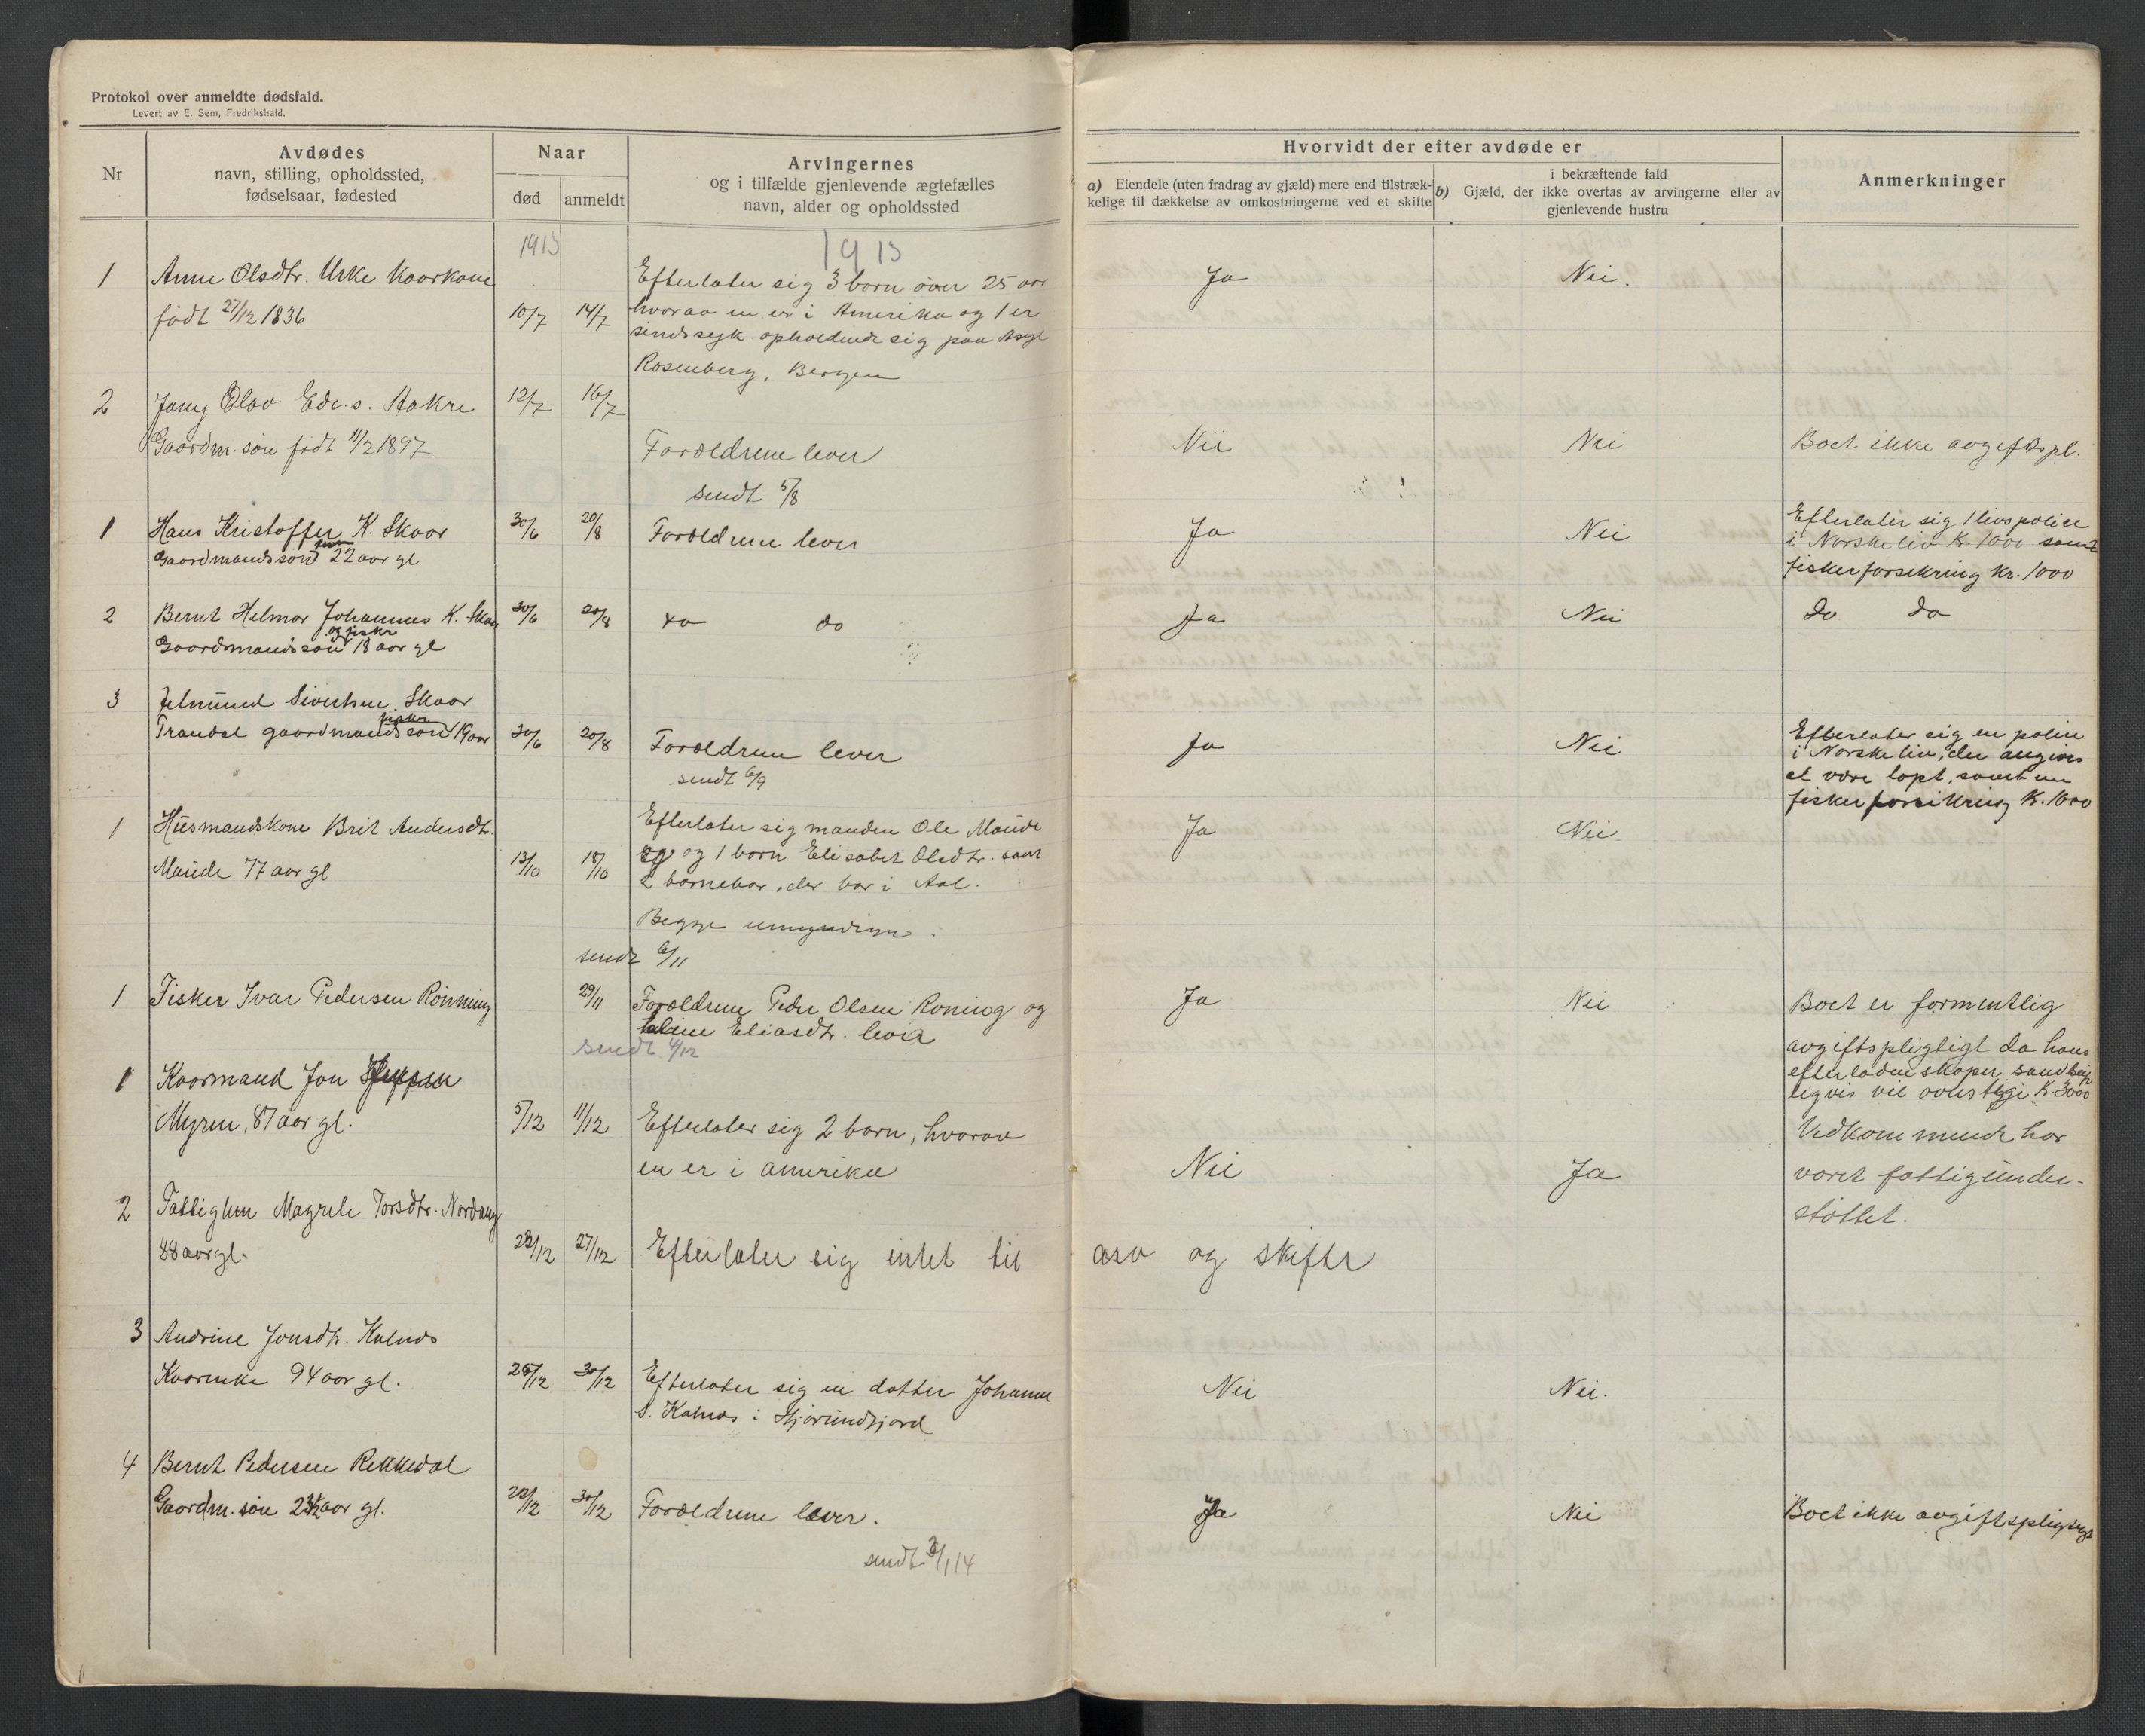 Protokol over anmeldte dødsfald.
Levert av E. Sem, Fredrikshald.
Nr
Avdødes
navn, stilling, opholdssted,
fødselsaar, fødested
Naar
død
anmeldt
Arvingernes
og i tilfælde gjenlevende ægtefælles
navn, alder og opholdssted
Hvorvidt der efter avdøde er
a) Eiendele (uten fradrag av gjæld) mere end tilstræk-
kelige til dækkelse av omkostningerne ved et skifte
i bekræftende fald
b) Gjæld, der ikke overtas av arvingerne eller av
gjenlevende hustru
Anmerkninger
1913
1913
1 Anne Olsdtr. Urke Kaarkone
født 27/12 1836
10/7 14/7
Efterlater sig 3 born over 25 aar
hvorav en er i Amerika og 1 er
sindssyk opholdende sig paa Asyl
Rosenberg, Bergen
Ja
Nei.
2 Jony Olav Edv.s. Stakre
Gaardm. søn født 11/2 1897
12/7 16/7
Forældrene lever
sendt 5/8
Nei
Nei
Boet ikke avgiftspl.
1 Hans Kristoffer K. Skaar
Gaardmandssøn 22 aar gl
30/6 20/8
Forældrene lever
Ja
Nei
Efterlater sig 1 livspolice
i Norske liv Kr. 1000 samt
fisker forsekring Kr. 1000
2 Bernt Helmar Johannes K. Skaar
og fisker
Gaardmandssøn 18 aar gl
30/6 20/8
do do
Ja
Nei
do do
3 Jelmund Sivertsen Skaar
fisker
Trandal gaardmandssøn 19 aar
30/6 20/8
Forældrene lever
sendt 6/9
Ja
Nei
Efterlater sig en police
i Norske liv, der angives
at være tapt, samt en
fisker forsikring Kr. 1000
1 Husmandskone Brit Andersdtr.
Maude 77 aar gl
13/10 18/10
Efterlater sig manden Ole Maude
og 1 born Elisabet Olsdtr. samt
2 barnebar, der bor i Aal.
Begge umyndige.
sendt 6/11
Ja
Nei
1 Fisker Ivar Pedersen Rönning
29/11
Forældrene Peder Olsen Roning og
Eliasdtr. lever
sendt 4/12
Ja
Nei
Boet er formentlig
avgiftspligtigt da hans
efterladenskaper sandsyn
ligvis vil overstige Kr 3000
1 Kaarmand Jon
Myren, 87 aar gl.
5/12 11/12
Efterlater sig 2 barn, hvorav
en er i amerika
Nei
Ja
Vedkommende har
været fattigunder-
støttet.
2 Fattiglem Magrete Torsdtr. Nordang
88 aar gl.
22/12 27/12
Efterlater sig intet til arv og skifte
3 Andrine Jonsdtr. Kalnæs
Kaarenke 94 aar gl.
25/12 30/12
Efterlater sig en datter Johanne
S. Kalnæs i Hjørundfjord
Nei
Nei.
4 Bernt Pedersen Rekkedal
Gaardm. søn 23 1/2 aar gl.
22/12 30/12
Forældrene lever.
sendt 3/1 14
Ja
Nei
Boet ikke avgiftspligtigt